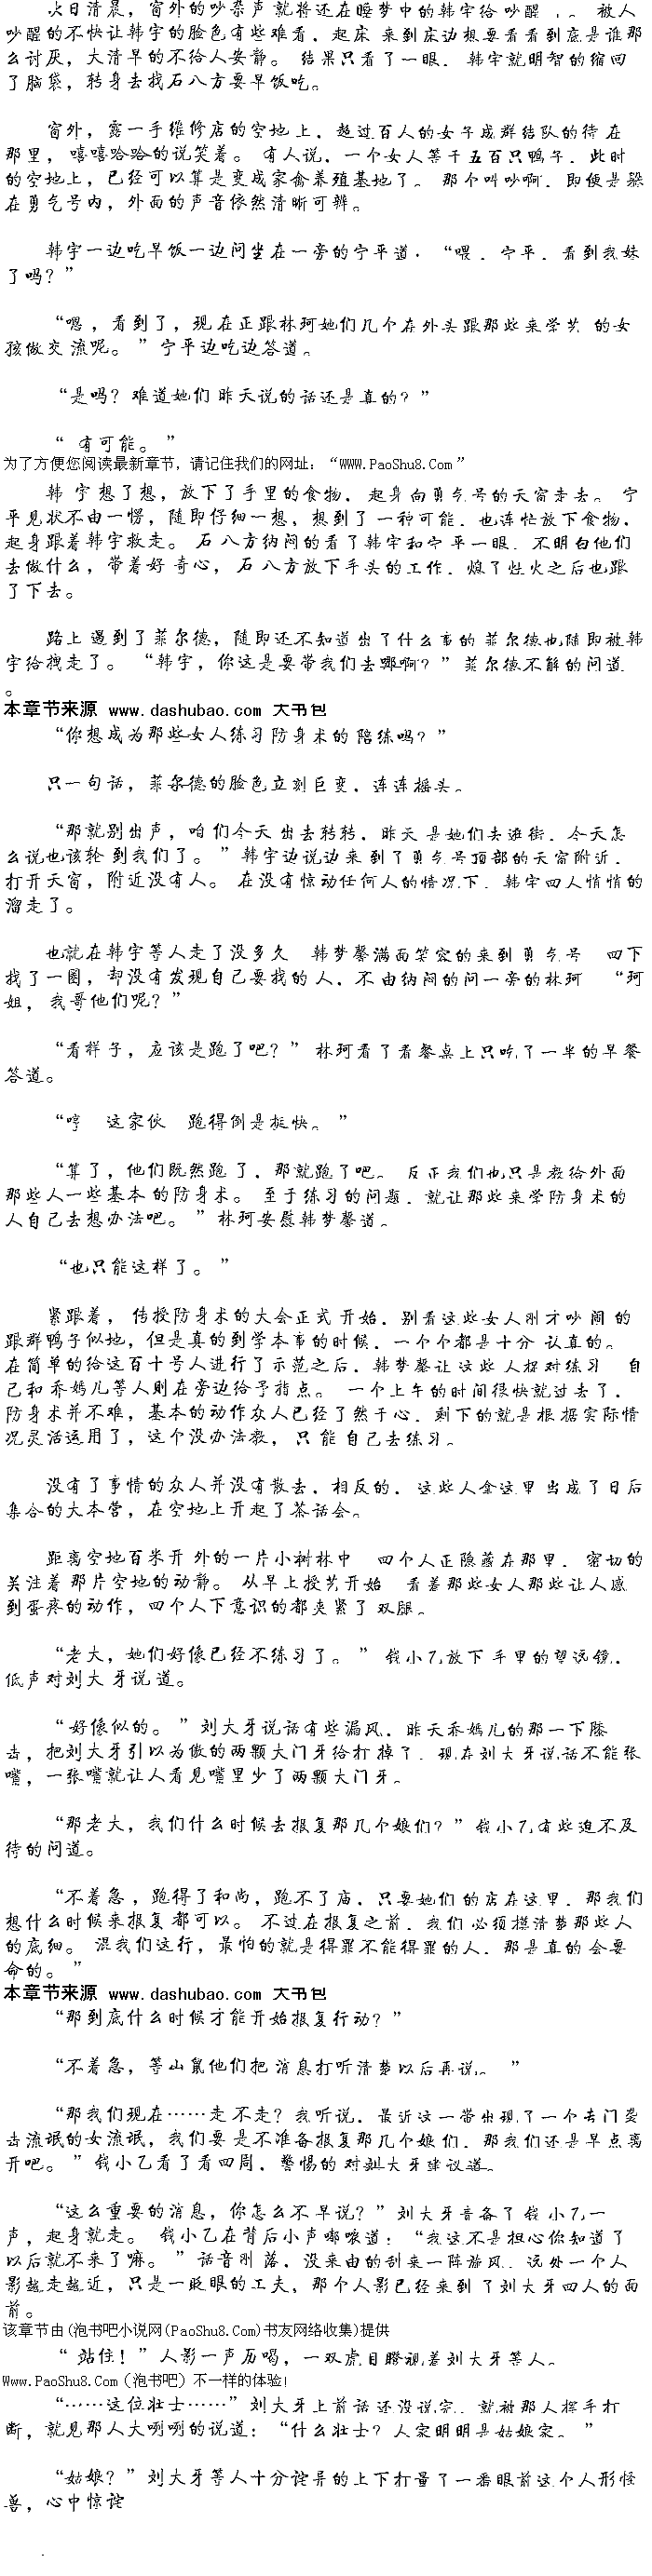 次日清晨，窗外的吵杂声就将还在睡梦中的韩宇给吵醒了。被人
吵醒的不快让韩宇的脸色有些难看，起床来到床边想要看看到底是谁那
么讨厌，大清早的不给人安静。结果只看了一眼，韩宇就明智的缩回
了脑袋，转身去找石八方要早饭吃。
窗外，露一手维修店的空地上，超过百人的女子成群结队的待在
那里，嘻嘻哈哈的说笑着。有人说，一个女人等于五百只鸭子，此时
的空地上，已经可以算是变成家禽养殖基地了。那个叫吵啊，即便是躲
在勇气号内，外面的声音依然清晰可辨。
韩宇一边吃早饭一边问坐在一旁的宁平道：“喂，宁平，看到我妹
了吗？”
“嗯，看到了，现在正跟林珂她们几个在外头跟那些来学艺的女
孩做交流呢。”宁平边吃边答道。
“是吗？难道她们昨天说的话还是真的？”
“有可能。”
为了方便您阅读最新章节，请记住我们的网址：“WWW.PaoShu8.Com”
韩宇想了想，放下了手里的食物，起身向勇气号的天窗走去。宁
平见状不由一愣，随即仔细一想，想到了一种可能，也连忙放下食物，
起身跟着韩宇救走。石八方纳闷的看了韩宇和宁平一眼，不明白他们
去做什么，带着好奇心，石八方放下手头的工作，熄了灶火之后也跟
了下去。
路上遇到了菲尔德，随即还不知道出了什么事的菲尔德也随即被韩
宇给拽走了。“韩宇，你这是要带我们去哪啊？”菲尔德不解的问道
。
本章节来源 www.dashubao.com 大书包
“你想成为那些女人练习防身术的陪练吗？”
只一句话，菲尔德的脸色立刻巨变，连连摇头。
“那就别出声，咱们今天出去转转，昨天是她们去逛街，今天怎
么说也该轮到我们了。”韩宇边说边来到了勇气号顶部的天窗附近，
打开天窗，附近没有人。在没有惊动任何人的情况下，韩宇四人悄悄的
溜走了。
也就在韩宇等人走了没多久　韩梦馨满面笑容的来到勇气号　四下
找了一圈，却没有发现自己要找的人，不由纳闷的问一旁的林珂　“珂
姐，我哥他们呢？”
“看样子，应该是跑了吧？”林珂看了看餐桌上只吃了一半的早餐
答道。
“哼　这家伙　跑得倒是挺快。”
“算了，他们既然跑了，那就跑了吧。反正我们也只是教给外面
那些人一些基本的防身术。至于练习的问题，就让那些来学防身术的
人自己去想办法吧。”林珂安慰韩梦馨道。
“也只能这样了。”
紧跟着，传授防身术的大会正式开始，别看这些女人刚才吵闹的
跟群鸭子似地，但是真的到学本事的时候，一个个都是十分认真的。
在简单的给这百十号人进行了示范之后，韩梦馨让这些人捉对练习　自
己和乔嫣儿等人则在旁边给予指点。一个上午的时间很快就过去了，
防身术并不难，基本的动作众人已经了然于心，剩下的就是根据实际情
况灵活运用了，这个没办法教，只能自己去练习。
没有了事情的众人并没有散去，相反的，这些人拿这里当成了日后
集合的大本营，在空地上开起了茶话会。
距离空地百米开外的一片小树林中　四个人正隐藏在那里，密切的
关注着那片空地的动静。从早上授艺开始　看着那些女人那些让人感
到蛋疼的动作，四个人下意识的都夹紧了双腿。
“老大，她们好像已经不练习了。”钱小乙放下手里的望远镜，
低声对刘大牙说道。
“好像似的。”刘大牙说话有些漏风，昨天乔嫣儿的那一下膝
击，把刘大牙引以为傲的两颗大门牙给打掉了，现在刘大牙说话不能张
嘴，一张嘴就让人看见嘴里少了两颗大门牙。
“那老大，我们什么时候去报复那几个娘们？”钱小乙有些迫不及
待的问道。
“不着急，跑得了和尚，跑不了庙，只要她们的店在这里，那我们
想什么时候来报复都可以。不过在报复之前，我们必须摸清楚那些人
的底细。混我们这行，最怕的就是得罪不能得罪的人，那是真的会要
命的。”
本章节来源 www.dashubao.com 大书包
“那到底什么时候才能开始报复行动？”
“不着急，等山鼠他们把消息打听清楚以后再说。”
“那我们现在……走不走？我听说，最近这一带出现了一个专门袭
击流氓的女流氓，我们要是不准备报复那几个娘们，那我们还是早点离
开吧。”钱小乙看了看四周，警惕的对刘大牙建议道。
“这么重要的消息，你怎么不早说？”刘大牙责备了钱小乙一
声，起身就走。钱小乙在背后小声嘟哝道：“我这不是担心你知道了
以后就不来了嘛。”话音刚落，没来由的刮来一阵旋风，远处一个人
影越走越近，只是一眨眼的工夫，那个人影已经来到了刘大牙四人的面
前。
该章节由(泡书吧小说网(PaoShu8.Com)书友网络收集)提供
“站住！”人影一声厉喝，一双虎目瞪视着刘大牙等人。
Www.PaoShu8.Com（泡书吧）不一样的体验!
“……这位壮士……”刘大牙上前话还没说完，就被那人挥手打
断，就见那人大咧咧的说道：“什么壮士？人家明明是姑娘家。”
“姑娘？”刘大牙等人十分诧异的上下打量了一番眼前这个人形怪
兽，心中惊诧